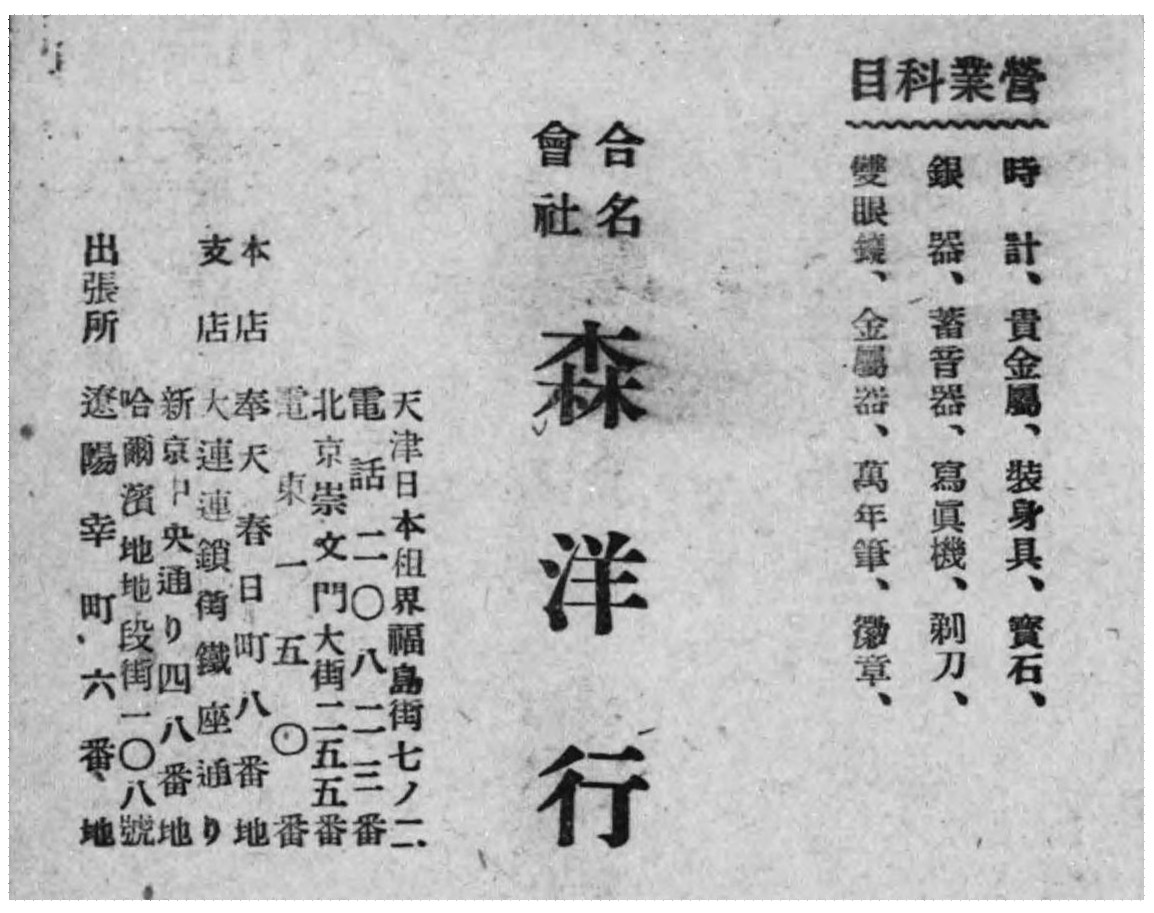 營業科目
時計、貴金屬、裝身具、寳石、
銀器、蓄音器、寫眞機、剃刀、
雙眼鏡、金屬器、萬年筆、徽章、
合名
會社
森洋行
天津日本租界福島街七ノ二
電話二〇八二三番
北京崇文門大街二五五番
電東一五〇番
本店 奉天春日町八番地
支店 大連連鎖街鐵座通り
新京中央通り四八番地
哈爾濱地地段街一〇八號
出張所 遼陽幸町、六番、地